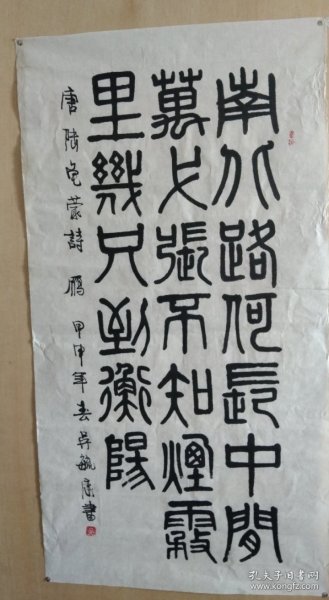 南北路何長中間
萬弋張不知煙霧
里幾只到衡陽
唐陸龟蒙詩 雁 甲申年春吴毓庠書
孔夫子旧书网